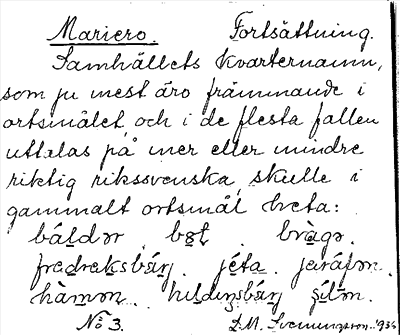 Mariero. Fortsättning.
Samhällets kvarternamn,
som ju mest äro främmande i
ortsmålet, och i de flesta fallen
uttalas på mer eller mindre
riktig rikssvenska, skulle i
gammalt ortsmål heta:
båldər
fredreksbárj. jéta.
hàmən.
No 3. D.M. Svenningson. 1934